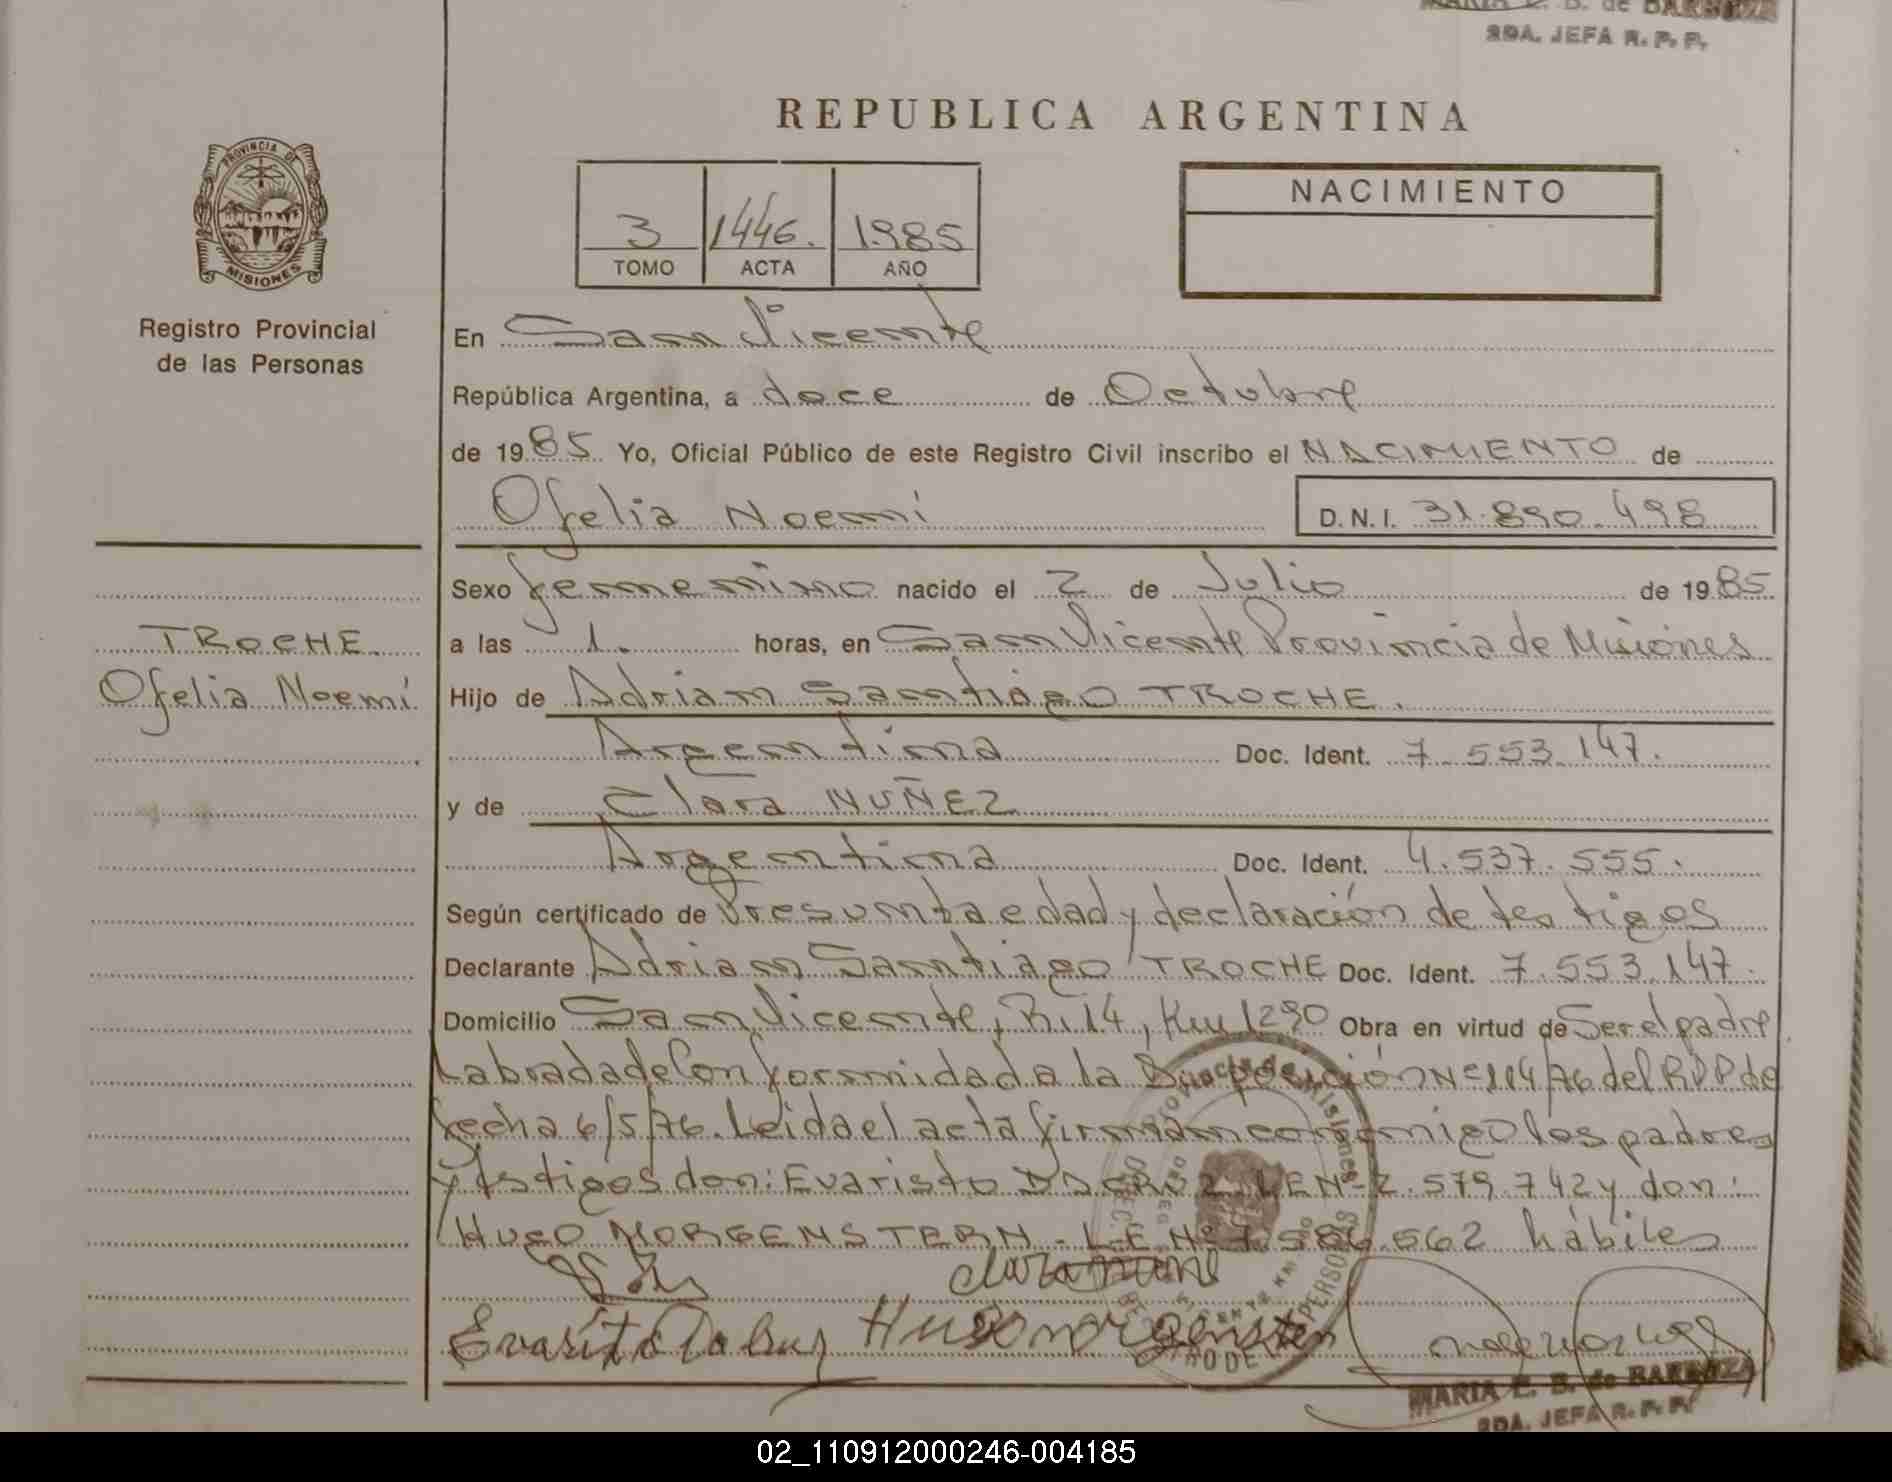 MARIA E. B. de BARBOZA
2DA. JEFA R. P. P.
REPUBLICA ARGENTINA
PROVINCIA DE
MISIONES
Registro Provincial
de las Personas
3 1446. 1985
TOMO ACTA AÑO
NACIMIENTO
En San Vicente
República Argentina, a doce de Octubre
de 1985 Yo, Oficial Público de este Registro Civil inscribo el NACIMIENTO de
Ofelia Noemí D.N.I. 31.890.498
Sexo femenino nacido el 2 de Julio de 1985
TROCHE.
Ofelia Noemí
a las 1. horas, en San Vicente Provincia de Misiones
Hijo de Adrian Santiago TROCHE.
Argentina Doc. Ident. 7.553.147.
y de Clara NUÑEZ
Argentina Doc. Ident. 4.537.555.
Según certificado de Presunta edad y declaración de testigos
Declarante Adrian Santiago TROCHE Doc. Ident. 7.553.147.
Domicilio San Vicente, R. 14, Km 1290 Obra en virtud de Ser el padre
Labrada de Conformidad a la Disposición Nº 114/76 del R.P.P de
fecha 6/5/76. Leida el acta firman conmigo los padres
y testigos don: Evaristo DACRUZ L.E Nº 2.579.742 y don:
HUGO MORGENSTERN - L.E. Nº 7.586.562 hábiles
Evaristo Dacruz Hugo Morgenstern
MARIA E. B. de BARBOZA
2DA. JEFA R. P. P.
02_110912000246-004185